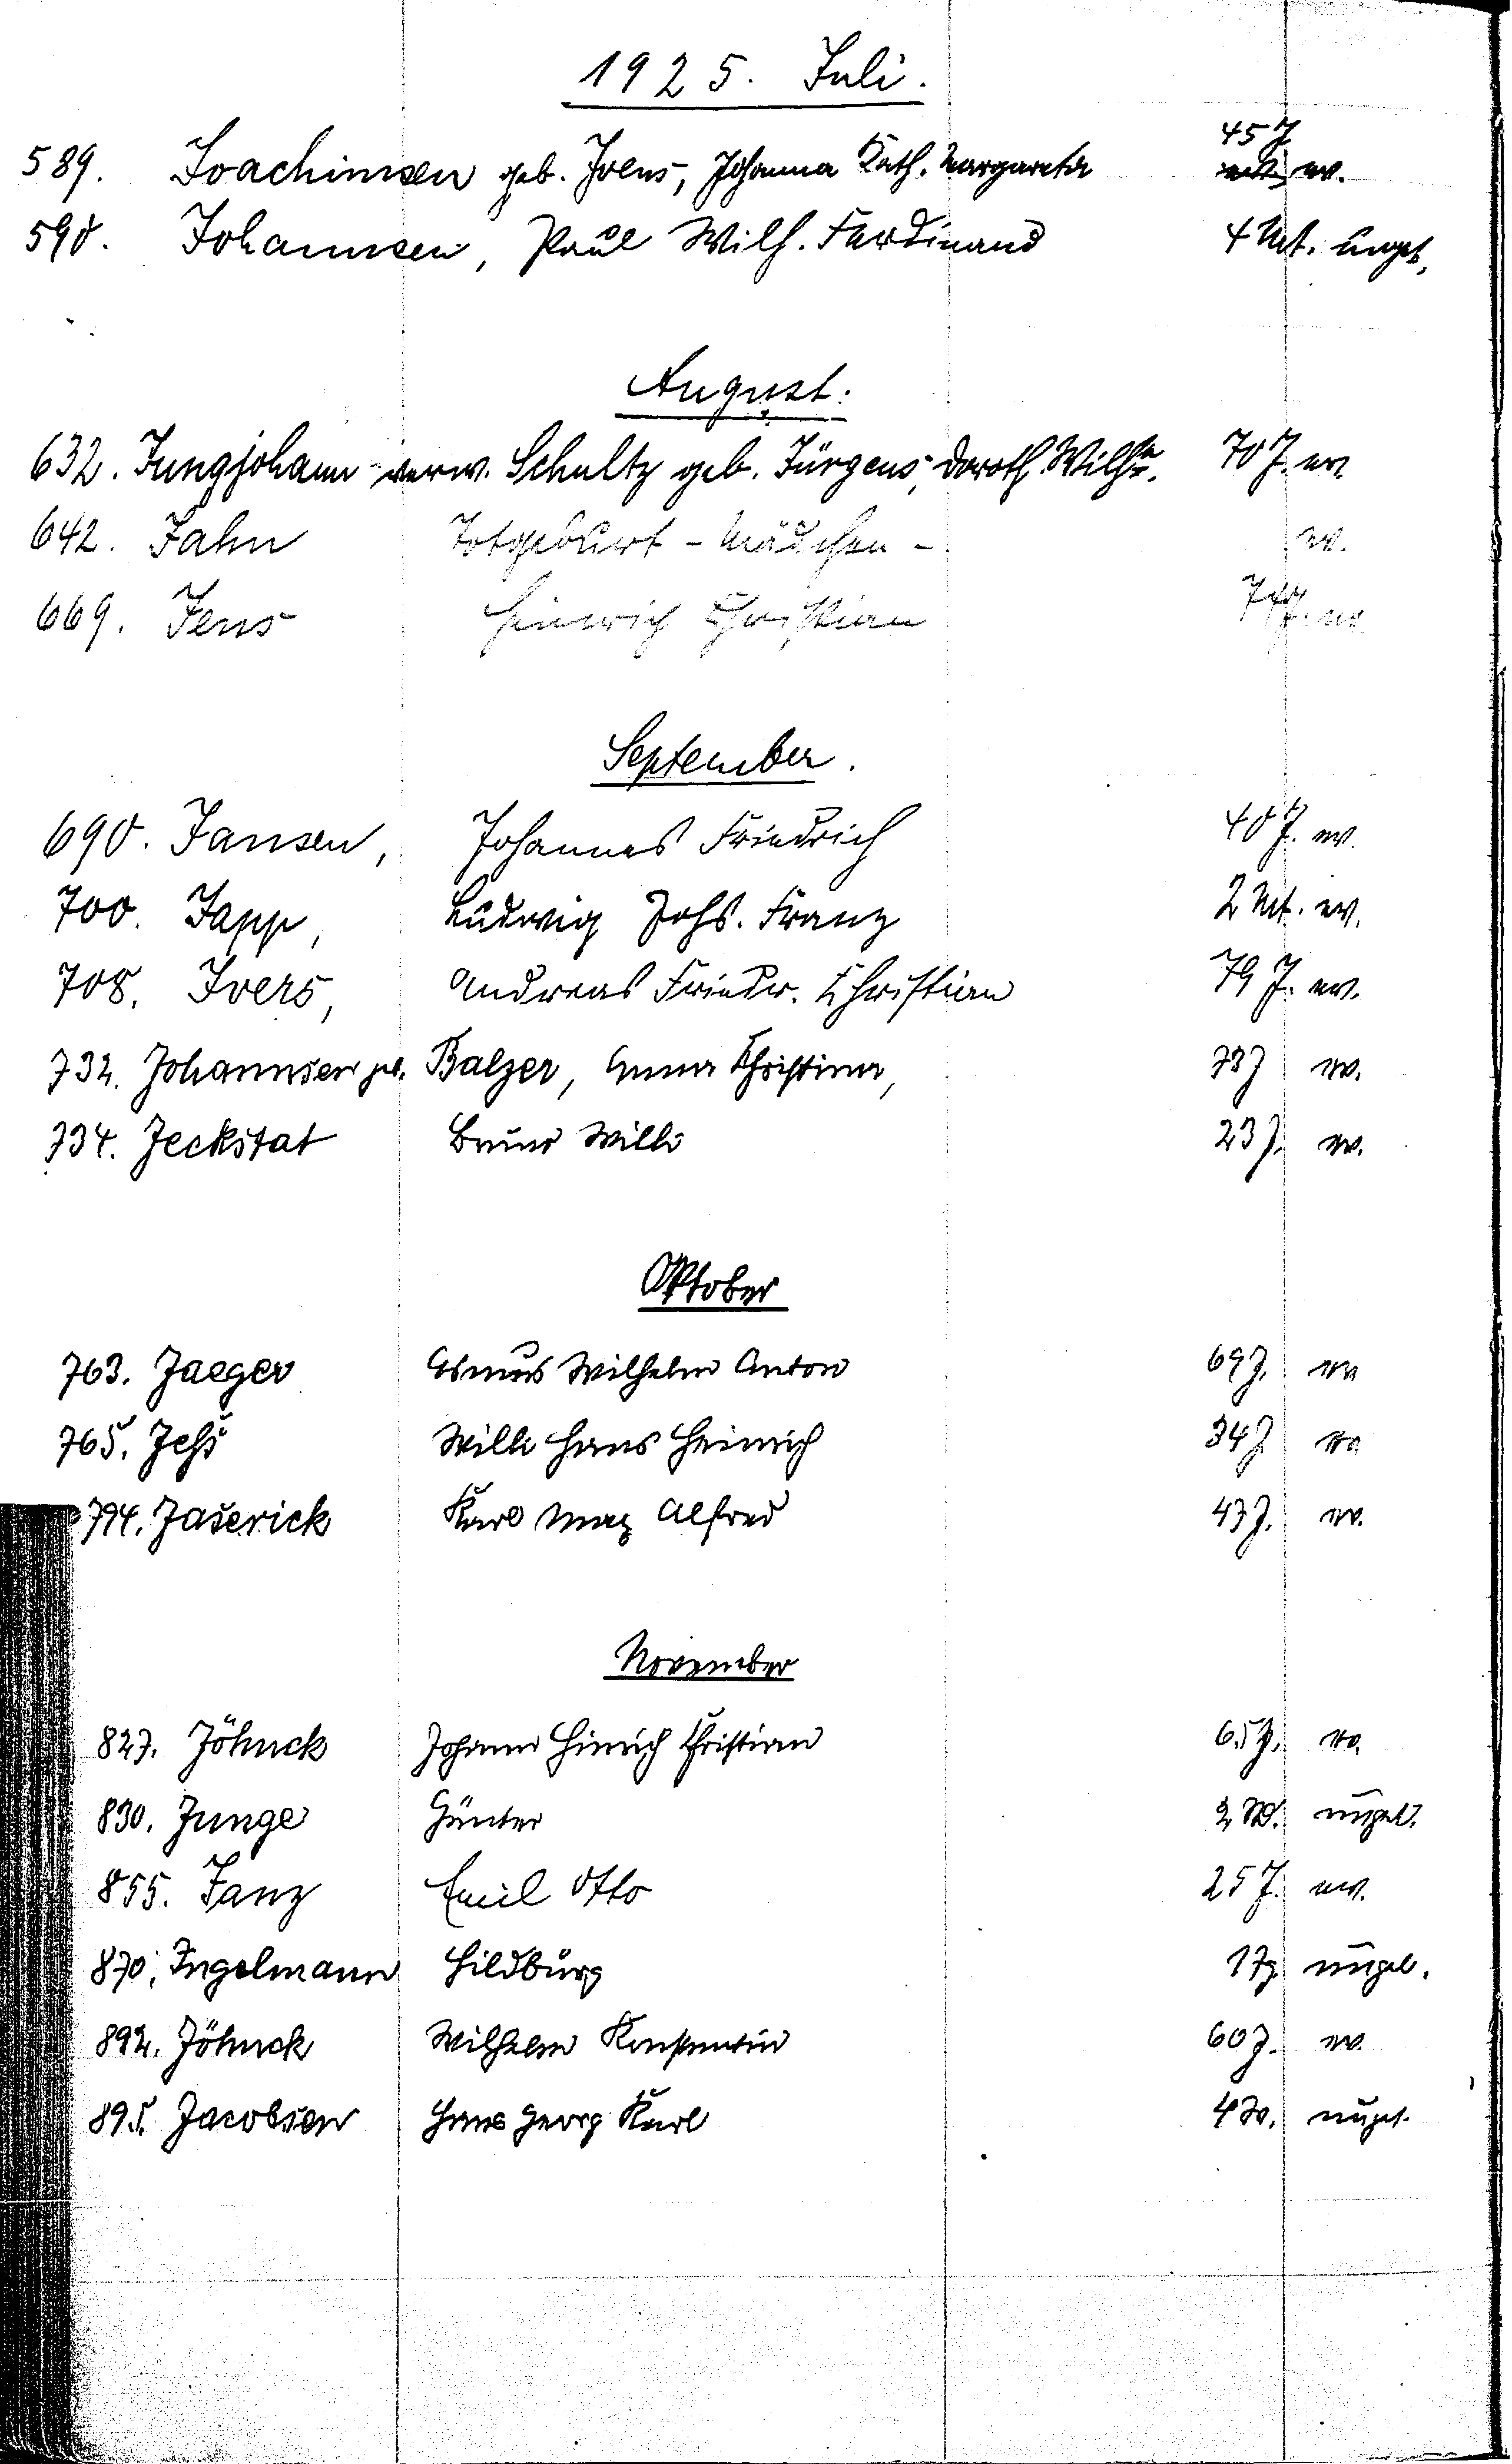 1925. Juli.
589. Joachimsen geb. Ivens, Johanna Kath. Margareta 45 J. ev.
590. Johannsen, Paul Wilh. Ferdinand 4 Mt. unget.
August.
632. Jungjohann verw. Schultz geb. Jürgens, Doroth. Wilhe. 70 J. ev.
642. Jahn Totgeburt - Mädchen - ev.
669. Jens Hinrich Christian 74 J. ev.
September.
690. Jansen, Johannes Friedrich 40 J. ev.
700. Japp, Ludwig Johs. Franz 2 Mt. ev.
708. Ivers, Andreas Friedr. Christian 79 J. ev.
732. Johannsen geb. Balzer, Anna Christina, 73 J ev.
734. Jeckstat Bruno Willi 23 J. ev.
Oktober
763. Jaeger Asmus Wilhelm Anton 69 J. ev.
765. Jeß Willi Hans Heinrich 34 J. ev.
794. Jaserick Karl Max Alfred 43 J. ev.
November
827. Jöhnck Johann Hinrich Christian 65 J. ev.
830. Junge Günter 2 W. unget.
855. Janz Emil Otto 25 J. ev.
870. Ingelmann Hildburg unget.
892. Jöhnck Wilhelm Konstantin 60 J. ev.
895. Jacobsen Hans Georg Karl unget.